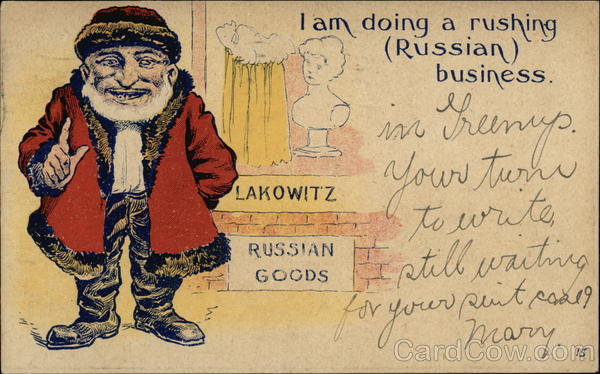 I am doing a rushing
(Russian)
business.
in Greenup.
Your turn
to write,
still waiting
for your
Mary.
LAKOWITZ
RUSSIAN
GOODS
15
CardCow.com